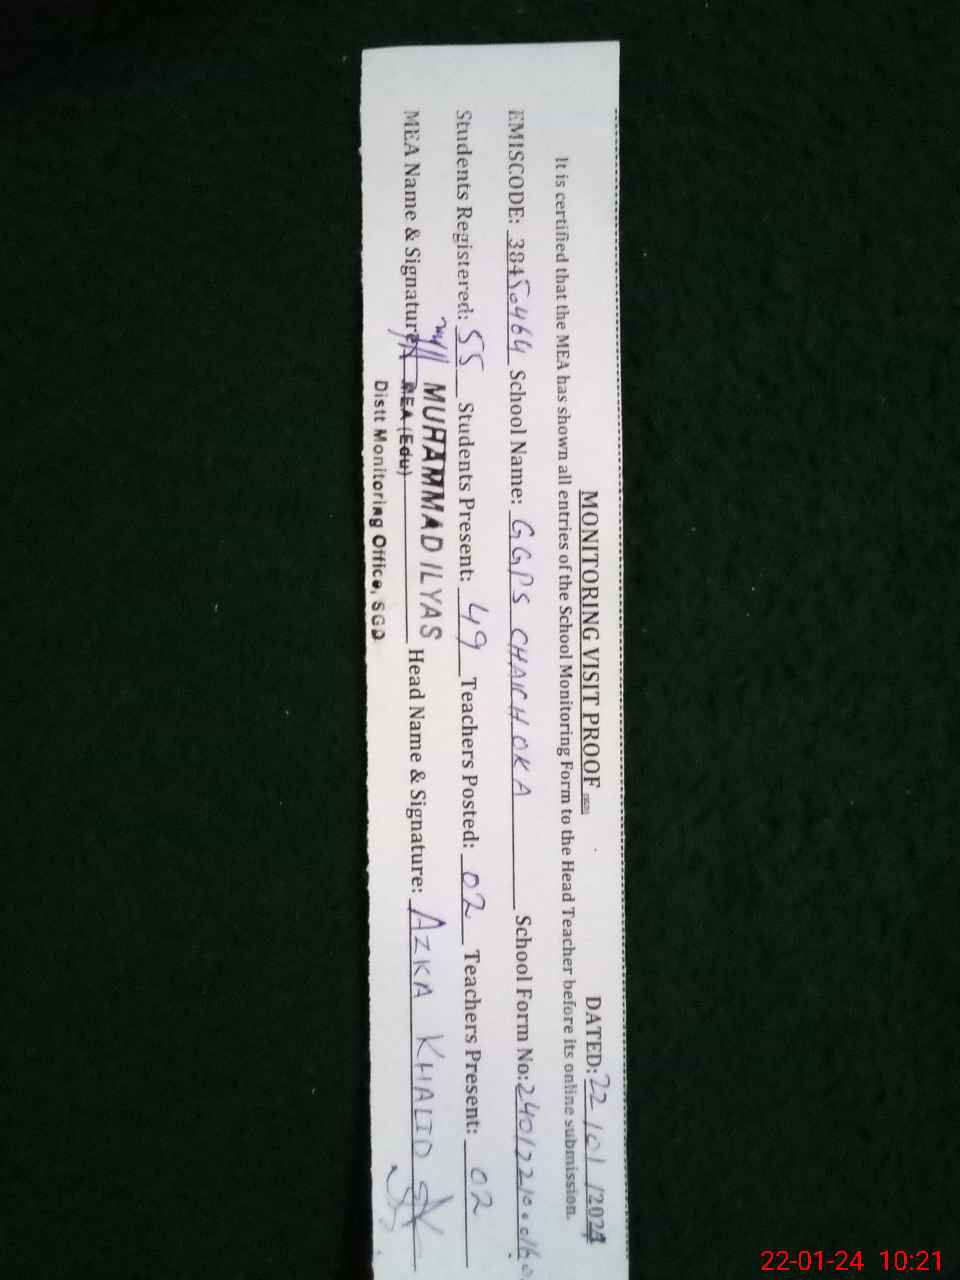 MONITORING VISIT PROOF DATED: 22/01/2024
It is certified that the MEA has shown all entries of the School Monitoring Form to the Head Teacher before its online submission.
EMISCODE: 38450464 School Name: GGPS CHAICHOKA School Form No:
Students Registered: 55 Students Present: 49 Teachers Posted: 02 Teachers Present: 02
MEA Name & Signature: MUHAMMAD ILYAS Head Name & Signature: AZKA KHALID
MEA (Edu)
Distt Monitoring Office, SGD
22-01-24 10:21